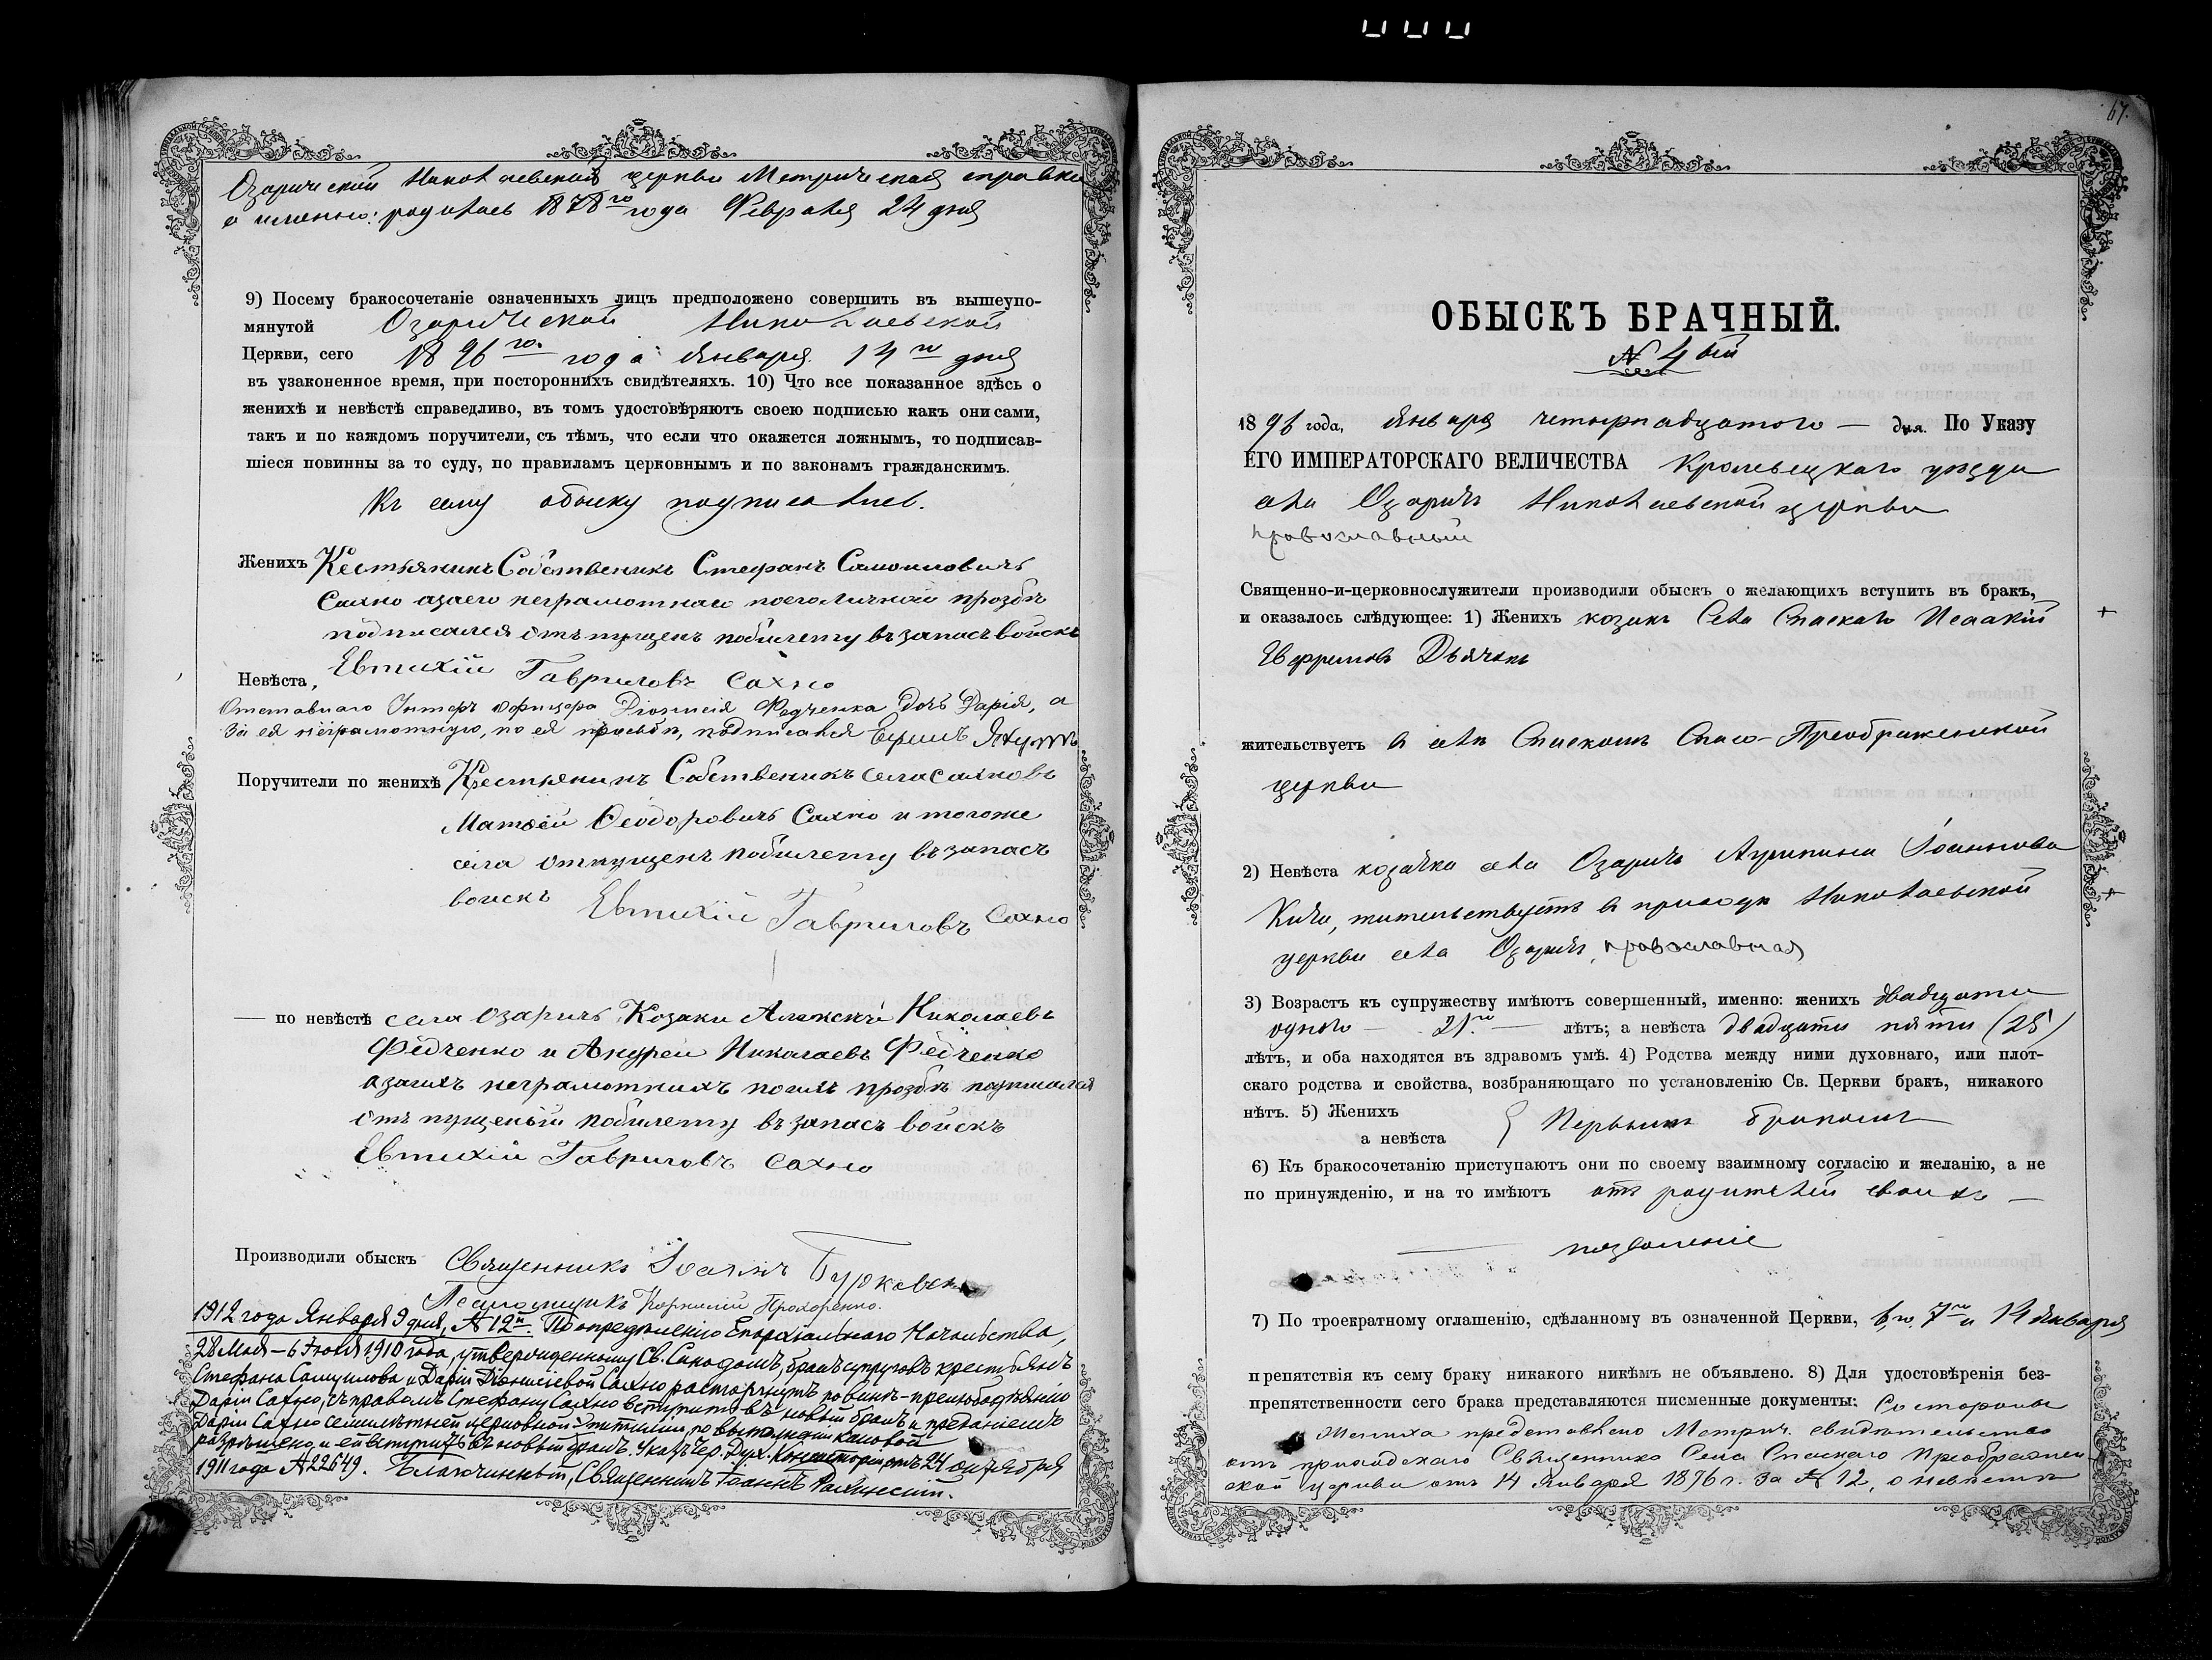 Озарической Николаевской церкви Метрическая справка
а именно: родилась 1878го года Февраля 24 дня
9) Посему бракосочетаніе означенныхъ лицъ предположено совершить въ вышеупо-
мянутой Озарической Николаевской
Церкви, сего 1896го. года Января 14го дня
въ узаконенное время, при постороннихъ свидѣтеляхъ. 10) Что все показанное здѣсь о
женихѣ и невѣстѣ справедливо, въ томъ удостовѣряютъ своею подписью какъ они сами,
такъ и по каждомъ поручители, съ тѣмъ, что если что окажется ложнымъ, то подписав-
шіеся повинны за то суду, по правиламъ церковнымъ и по законамъ гражданскимъ.
Къ сему обыску подписались.
Женихъ Кестьянинъ Собственикъ Стефанъ Самоиловичъ
Сахно азаего неграмотнаго поеголичной прозбѣ
подписался отъпущенъ побилету въ запасъ войскъ
Евтихій Гавриловъ Сахно
Невѣста,
Отставнаго Унтеръ Офицера Діонисія Федченка дочь Дарія, а
за ея неграмотную, по ея прозьбѣ, подписался
Поручители по женихѣ Крестьянинъ Собственикъ села сахновъ
Матвей Феодоровичъ Сахно и тогоже
села отпущенъ побилету въ запасъ
воискъ Евтихій Гавриловъ Сахно
— по невѣстѣ села Озаричъ Козаки Алексѣй Николаевъ
Федченко и Андрей Николаевъ Федченко
азаихъ неграмотныхъ поихъ прозбѣ подписался
отъпущеный побилету въ запасъ войскъ
Евтихій Гавриловъ Сахно
Производили обыскъ Священникъ Іоаннъ
Псаломщикъ Корнилій Прохоренко.
1912 года Января 9 дня, № 12й. По опредѣленію Епархіальнаго Начальства,
28 Мая – 6 Іюня 1910 года, утвержденному Св. Синодомъ, бракъ супруговъ крестьянъ
Стефана Самуилова и Даріи Діонисіевой Сахно расторгнутъ по винѣ прелюбодѣянія
Даріи Сахно, съ правомъ Стефану Сахно вступить въ новый бракъ и преданіемъ
Даріи Сахно семилѣтней церковной эпитиміи, по выполненіи каковой
разрѣшено и ей вступить въ новый бракъ. Указъ Чер. Дух. Консисторіи отъ 24 октября
1911 года № 22649. Благочинный, Священникъ Іоаннъ
67.
ОБЫСКЪ БРАЧНЫЙ.
№ 4ый
1896 года, Января четырнадцатого — дня. По Указу
ЕГО ИМПЕРАТОРСКАГО ВЕЛИЧЕСТВА Кролевецкаго уезда
села Озаричъ Николаевской церкви
православный
Священно-и-церковнослужители производили обыскъ о желающихъ вступить въ бракъ,
и оказалось слѣдующее: 1) Женихъ козакъ Села Спаскаго Исаакій +
Ефремовъ Дьячокъ
жительствуетъ в селѣ Спаскомъ Спасо-Преображенской
церкви
2) Невѣста козачка села Озаричъ Агрипина Іоаннова
жительствуетъ в приходѣ Николаевской +
церкви села Озаричъ, православная
3) Возрастъ къ супружеству имѣютъ совершенный, именно: женихъ двадцати
одного — 21го — лѣтъ; а невѣста двадцати пяти (25)
лѣтъ, и оба находятся въ здравомъ умѣ. 4) Родства между ними духовнаго, или плот-
скаго родства и свойства, возбраняющаго по установленію Св. Церкви бракъ, никакого
нѣтъ. 5) Женихъ
а невѣста } Первымъ бракомъ
6) Къ бракосочетанію приступаютъ они по своему взаимному согласію и желанію, а не
по принужденію, и на то имѣютъ отъ родителей своихъ —
позволеніе
7) По троекратному оглашенію, сдѣланному въ означенной Церкви, 6го, 7го и 14 января
препятствія къ сему браку никакого никѣмъ не объявлено. 8) Для удостовѣренія без-
препятственности сего брака представляются писменные документы: Со стороны
жениха представлено Метрич. свидѣтельство
отъ приходскаго Священника Села Спаскаго Преображен-
ской церкви отъ 14 Января 1876 г. за № 12, о невѣстѣ